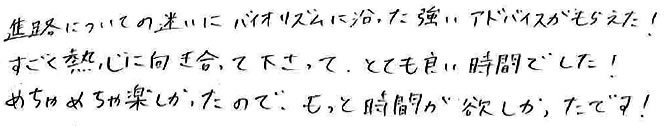 進路についての迷いにバイオリズムに沿った強いアドバイスがもらえた!
すごく熱心に向き合って下さって、とても良い時間でした!
めちゃめちゃ楽しかったので、もっと時間が欲しかったです!